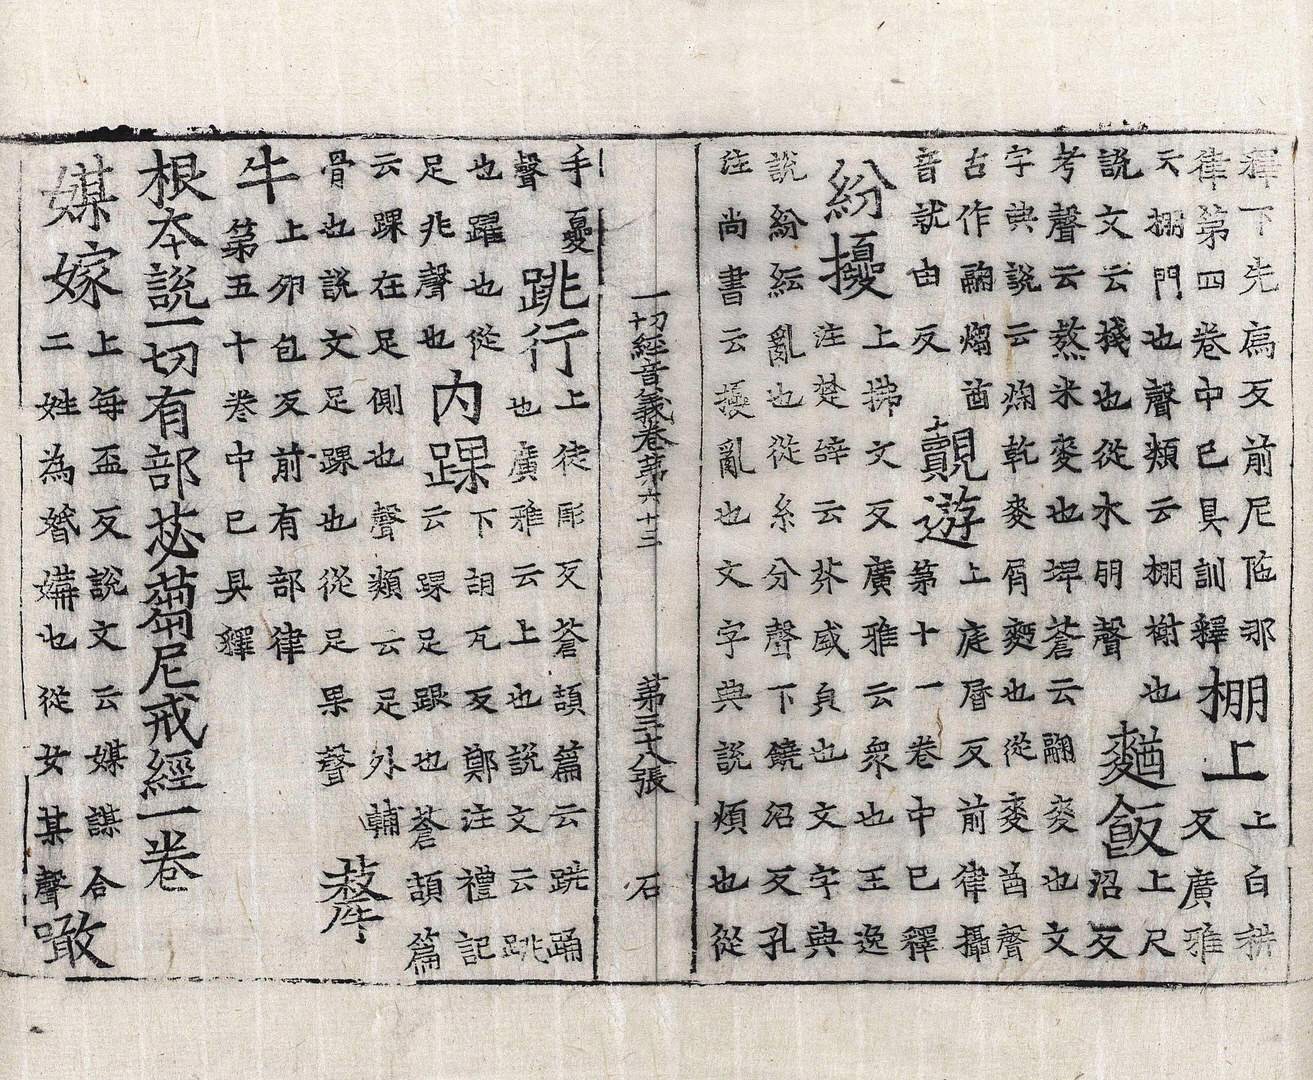 釋下先高反前尼陁那
律第四卷中已具訓釋
棚上
上白耕
反廣雅
天棚門也聲類云棚榭也
說文云棧也從水朋聲
麨飯
上尺
沼反
考聲云熬米麥也埤蒼云䎡麥也文
字典說云乾麥屑麨也從麥酋聲
古作䎡煼酋
音就由反
覿遊
上庭曆反前律攝
第十一卷中已釋
紛擾
上拂文反廣雅云衆也王逸
注楚辭云芬盛皃也文字典
說紛紜亂也從糸分聲下饒沼反孔
注尚書云擾亂也文字典說煩也從
一切經音義卷第六十三 第三十八張 石
手憂
聲
跳行
上徒彫反蒼頡篇云跳踊
也廣雅云上也說文云跳
也躍也從
足兆聲也
內踝
下胡瓦反鄭注禮記
云踝足跟也蒼頡篇
云踝在足側也聲類云足外輔
骨也說文足踝也從足果聲
犛
牛
上卯包反前有部律
第五十卷中已具釋
根本說一切有部苾蒭尼戒經一卷
媒嫁
上每盃反說文云媒謀合
二姓為婚媾也從女某聲
噉